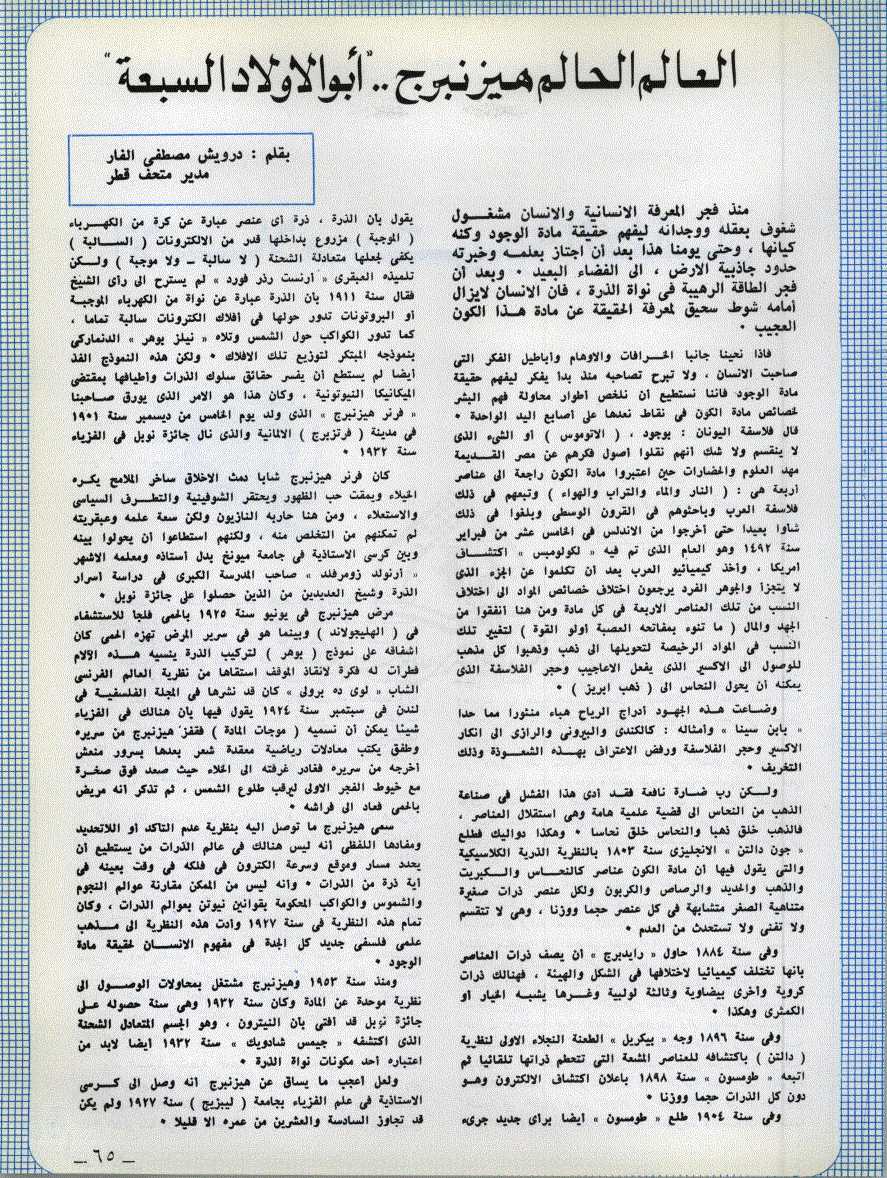 العالم الحالم هيزنبرج .. "أبو الاولاد السبعة"
بقلم : درويش مصطفى الفار
مدير متحف قطر
منذ فجر المعرفة الانسانية والانسان مشغـــول
شغوف بعقله ووجدانه ليفهم حقيقة مادة الوجود وكنه
كيانها ، وحتى يومنا هذا بعد أن اجتاز بعلمـــه وخبرته
حدود جاذبية الارض ، الى الفضاء البعيد • وبعد أن
فجر الطاقة الرهيبة فى نواة الذرة ، فان الانسان لايزال
أمامه شوط سحيق لمعرفة الحقيقة عن مادة هــذا الكون
العجيب •
فاذا نحينا جانبا الخــرافات والاوهام وأباطيل الفكر التى
صاحبت الانسان ، ولا تبرح تصاحبه منذ بدأ يفكر ليفهم حقيقة
مادة الوجود فاننا نستطيع أن نلخص أطوار محاولة فهم البشر
خصائص مادة الكون فى نقاط نعدها على أصابع اليد الواحدة •
قال فلاسفة اليونان : بوجود ، ( الاتوموس ) أو الشىء الذى
لا ينقسم ولا شك أنهم نقلوا أصول فكرهم عن مصر القـــديمة
مهد العلوم والحضارات حين اعتبروا مادة الكون راجعة الى عناصر
أربعة هى : ( النار والماء والتراب والهواء ) وتبعهم فى ذلك
فلاسفة العرب وباحثوهم فى القرون الوسطى وبلغوا فى ذلك
شاوا بعيدا حتى أخرجوا من الاندلس فى الخامس عشر من فبراير
سنة ١٤٩٢ وهو العام الذى تم فيه « لكولومبس » اكتشـــاف
أمريكا ، وأخذ كيميائيو العرب بعد أن تكلموا عن الجزء الذى
لا يتجزأ والجوهر الفرد يرجعون اختلاف خصائص المواد الى اختلاف
النسب من تلك العناصر الاربعة فى كل مادة ومن هنا أنفقوا من
الجهد والمال ( ما تنوء بمفاتحه العصبة أولو القوة ) لتغيير تلك
النسب فى المواد الرخيصة لتحويلها الى ذهب وذهبوا كل مذهب
للوصول الى الاكسير الذى يفعل الاعاجيب وحجر الفلاسفة الذى
يمكنه أن يحول النحاس الى ( ذهب ابريز ) •
وضـاعت هــذه الجهود أدراج الرياح هباء منثورا مما حدا
« بابن سينا » وأمثاله : كالكندى والبيرونى والرازى الى انكار
الاكسير وحجر الفلاسفة ورفض الاعتراف بهــذه الشعــوذة وذلك
التخريف •
ولــكن رب ضـارة نافعة فقــد أدى هذا الفشل فى صناعة
الذهب من النحاس الى قضية علمية هامة وهى استقلال العناصر ،
فالذهب خلق ذهبا والنحاس خلق نحاسا • وهكذا دواليك فطلع
« جون دالتن » الانجليزى سنة ١٨٠٣ بالنظرية الذرية الكلاسيكية
والتى يقول فيها أن مادة الكون عناصر كالنحـاس والــكبريت
والذهب والحديد والرصاص والكربون ولكل عنصر ذرات صغيرة
متناهية الصغر متشابهة فى كل عنصر حجما ووزنا ، وهى لا تنقسم
ولا تفنى ولا تستحدث من العدم •
وفى سنة ١٨٨٤ حاول « رايدبرج » أن يصف ذرات العناصر
بانها تختلف كيميائيا لاختلافها فى الشكل والهيئة ، فهنالك ذرات
كروية وأخرى بيضاوية وثالثة لولبية وغــرها يشبــه الخيار أو
الكمثرى وهكذا •
وفى سنة ١٨٩٦ وجه « بيكريل » الطعنة النجلاء الاولى لنظرية
( دالتن ) باكتشافه للعناصر المشعة التى تتحطم ذراتها تلقائيا ثم
اتبعه « طومسون » سنة ١٨٩٨ باعلان اكتشاف الالكترون وهــو
دون كل الذرات حجما ووزنا •
وفى سنة ١٩٠٤ طلع « طومسون » ايضا براى جديد جرىء
يقول بأن الذرة ، ذرة أى عنصر عبارة عن كرة من الكهــرباء
( الموجبة ) مزروع بداخلها قدر من الالكترونات ( الســالبة )
يكفى لجعلها متعادلة الشحنة ( لا سالبة ــ ولا موجبة ) ولــكن
تلميذه العبقرى « أرنست رذر فورد » لم يسترح الى رأى الشيخ
فقال سنة ١٩١١ بأن الذرة عبارة عن نواة من الكهرباء الموجبة
أو البروتونات تدور حولها فى أفلاك الكترونات سالبة تماما ،
كما تدور الكواكب حول الشمس وتلاه « نيلز بوهر » الدنماركى
بنموذجه المبتكر لتوزيع تلك الافلاك • ولكن هذه النموذج الفذ
أيضا لم يستطع أن يفسر حقائق سلوك الذرات وأطيافها بمقتضى
الميكانيكا النيوتونية ، وكان هذا هو الامر الذى يورق صــاحبنا
« فرنر هيزنبرج » الذى ولد يوم الخامس من ديسمبر سنة ١٩٠١
فى مدينة ( فرتزبرج ) الالمانية والذى نال جائزة نوبل فى الفزياء
سنة ١٩٣٢ •
كان فرنر هيزنبرج شابا دمث الاخلاق ساخر الملامح يكــره
الخيلاء ويمقت حب الظهور ويحتقر الشوفينية والتطــرف السياسى
والاستعلاء ، ومن هنا حاربه النازيون ولكن سعة علمه وعبقريته
لم تمكنهم من التخلص منه ، ولكنهم استطاعوا أن يحولوا بينه
وبين كرسى الاستاذية فى جامعة ميونخ بدل أستاذه ومعلمه الاشهر
« أرنولد زومرفلد » صاحب المدرسة الكبرى فى دراسة أسرار
الذرة وشيخ العديدين من الذين حصلوا على جائزة نوبل •
مرض هيزنبرج فى يونيو سنة ١٩٢٥ بالحمى فلجأ للاستشفاء
فى ( الهليجولاند ) وبينما هو فى سرير المرض تهزه الحمى كان
اشفاقه على نموذج ( بوهر ) لتركيب الذرة ينسيه هــذه الآلام
فطرأت له فكرة لانقاذ الموقف استقاها من نظرية العالم الفرنسى
الشاب « لوى ده برولى » كان قد نشرها فى المجلة الفلسفيـة فى
لندن فى سبتمبر سنة ١٩٢٤ يقول فيها بأن هنالك فى الفزياء
شيئا يمكن أن نسميه ( موجات المادة ) فقفز هيزنبرج من سريره
وطفق يكتب معادلات رياضية معقدة شعر بعدها بسرور منعش
أخرجه من سريره فغادر غرفته الى الخلاء حيث صعد فوق صخرة
مع خيوط الفجر الاولى ليرقب طلوع الشمس ، ثم تذكر انه مريض
بالحمى فعاد الى فراشه •
سمى هيزنبرج ما توصل اليه بنظرية عدم التأكد أو اللاتحديد
ومفادها اللفظى أنه ليس هنالك فى عالم الذرات من يستطيع أن
يحدد مسار وموقع وسرعة الكترون فى فلكه فى وقت بعينه فى
أية ذرة من الذرات • وأنه ليس من الممكن مقارنة عوالم النجوم
والشموس والكواكب المحكومة بقوانين نيوتن بعوالم الذرات ، وكان
تمام هذه النظرية فى سنة ١٩٢٧ وأدت هذه النظرية الى مــذهب
علمى فلسفى جديد كل الجدة فى مفهوم الانســان لحقيقة مادة
الوجود •
ومنذ سنة ١٩٥٣ وهيزنبرج مشتغل بمحاولات الوصــول الى
نظرية موحدة عن المادة وكان سنة ١٩٣٢ وهى سنة حصوله علــى
جائزة نوبل قد أفتى بأن النيترون ، وهو الجسم المتعادل الشحنة
الذى اكتشفه « جيمس شادويك » سنة ١٩٣٢ أيضا لابد من
اعتباره أحد مكونات نواة الذرة •
ولعل أعجب ما يساق عن هيزنبرج أنه وصل الى كــرسى
الاستاذية فى علم الفزياء بجامعة ( ليبزيج ) سنة ١٩٢٧ ولم يكن
قد تجاوز السادسة والعشرين من عمره الا قليلا •
ــ ٦٥ ــ